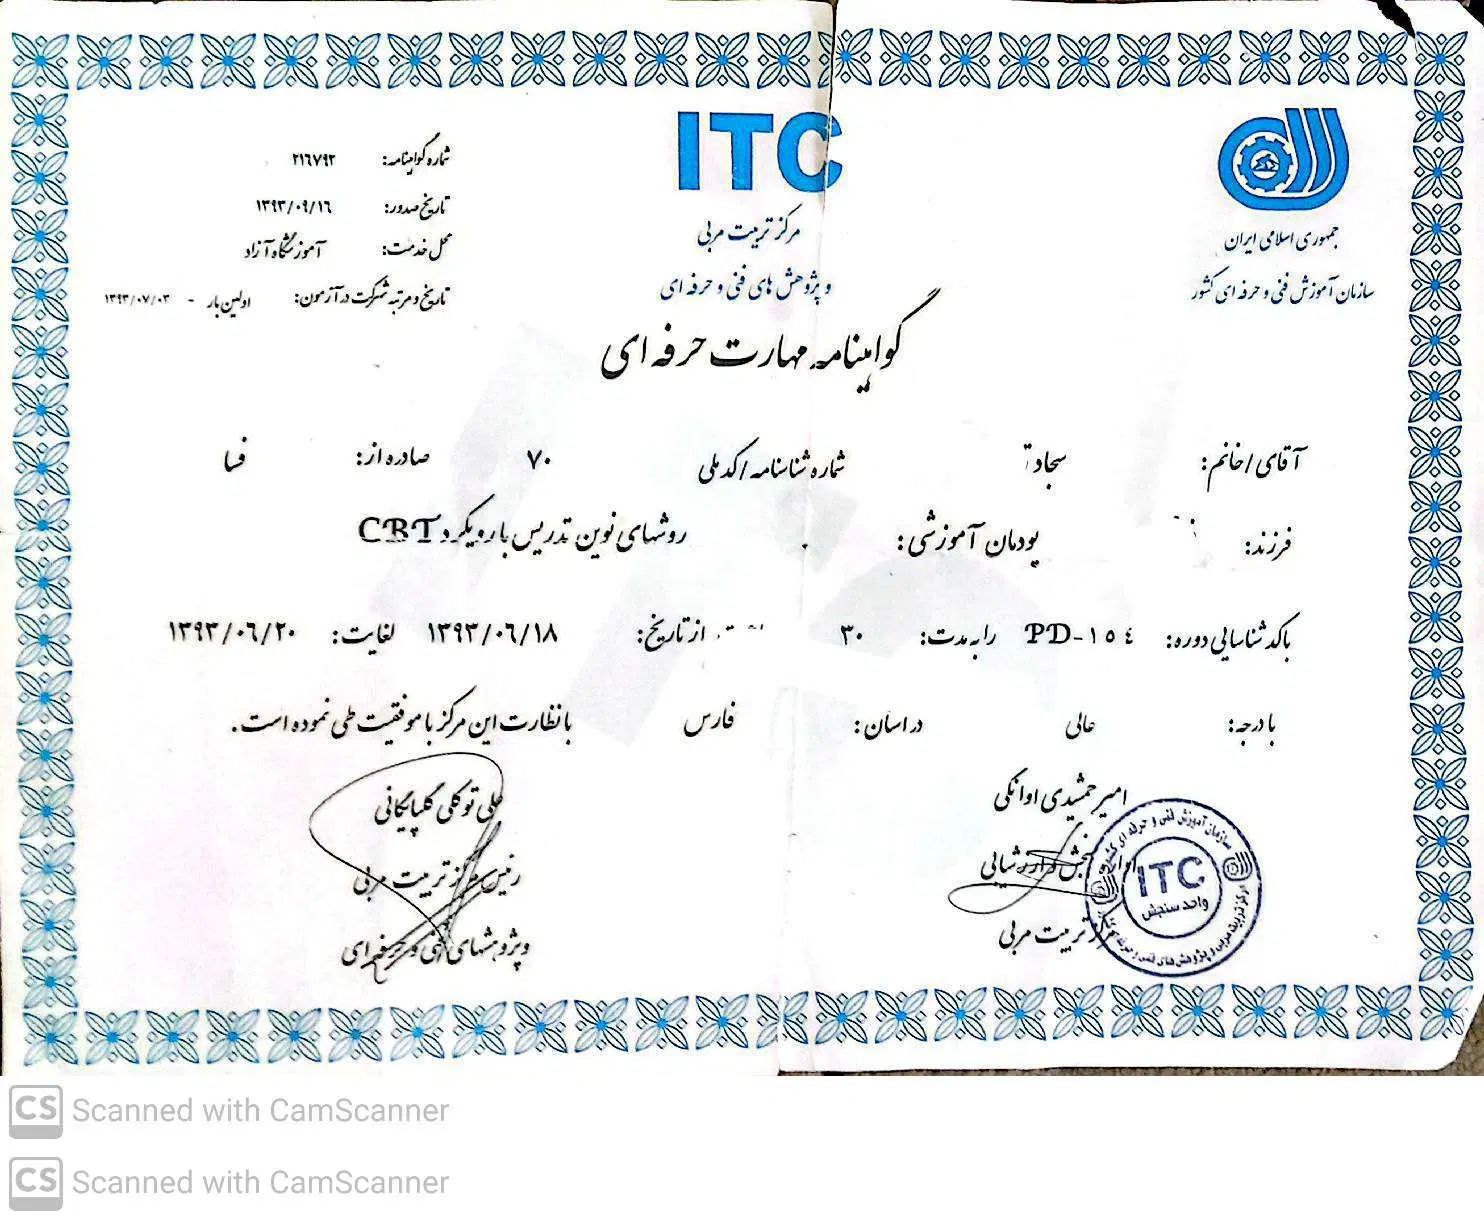 جمهوری اسلامی ایران
سازمان آموزش فنی و حرفه ای کشور
ITC
مرکز تربیت مربی
و پژوهش های فنی و حرفه ای
شماره گواهینامه: ۲۱۶۷۹۲
تاریخ صدور: ۱۳۹۳/۰۹/۱۶
محل خدمت: آموزشگاه آزاد
تاریخ و مرتبه شرکت در آزمون: اولین بار - ۱۳۹۳/۰۷/۰۳
گواهینامه مهارت حرفه ای
آقای / خانم: سجاد شماره شناسنامه / کد ملی ۷۰ صادره از: فسا
فرزند: پودمان آموزشی: روشهای نوین تدریس با رویکرد CBT
با کد شناسایی دوره: PD-۱۵۴ را به مدت: ۳۰ از تاریخ: ۱۳۹۳/۰۶/۱۸ لغایت: ۱۳۹۳/۰۶/۲۰
با درجه: عالی در استان: فارس با نظارت این مرکز با موفقیت طی نموده است.
امیر جمشیدی اوانکی
سنجش و ارزشیابی
مرکز تربیت مربی
علی توکلی گلپایگانی
رئیس مرکز تربیت مربی
و پژوهشهای فنی و حرفه ای
سازمان آموزش فنی و حرفه ای کشور
ITC
واحد سنجش
مرکز تربیت مربی و پژوهش های فنی و حرفه ای
CS Scanned with CamScanner
CS Scanned with CamScanner